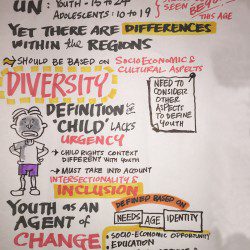 UN: YOUTH - 15 to 24
ADOLESCENTS: 10 to 19
SEEN
THIS AGE
YET THERE ARE DIFFERENCES
WITHIN the REGIONS
→ SHOULD BE BASED ON SOCIO ECONOMIC &
CULTURAL ASPECTS
DIVERSITY
NEED TO
CONSIDER
OTHER
ASPECTS
TO DEFINE
YOUTH
DEFINITION of
"CHILD" LACKS
URGENCY
→ CHILD RIGHTS CONTEXT
DIFFERENT WITH YOUTH
→ MUST TAKE INTO ACCOUNT
INTERSECTIONALITY &
INCLUSION
YOUTH AS AN
AGENT OF
CHANGE
DEFINED BASED ON
NEEDS, AGE IDENTITY
SOCIO-ECONOMIC OPPORTUNITY
EDUCATION